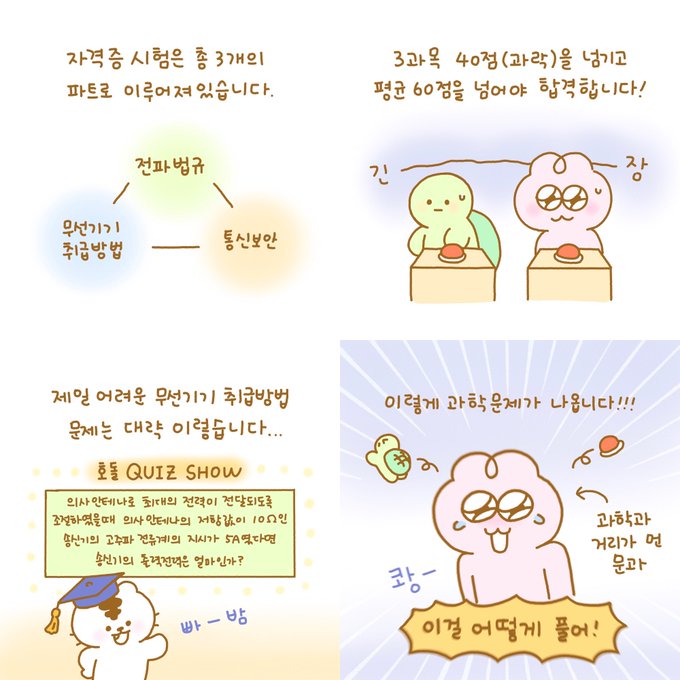 자격증 시험은 총 3개의
파트로 이루어져 있습니다.
전파법규
무선기기
취급방법
통신보안
3과목 40점(과락)을 넘기고
평균 60점을 넘어야 합격합니다!
긴 장
제일 어려운 무선기기 취급방법
문제는 대략 이렇습니다...
호돌 QUIZ SHOW
의사 안테나로 최대의 전력이 전달되도록
조절하였을때 의사 안테나의 저항값이 10Ω인
송신기의 고주파 전류계의 지시가 5A였다면
송신기의 출력전력은 얼마인가?
빠-밤
이렇게 과학문제가 나옵니다!!!
과학과
거리가 먼
문과
쾅-
이걸 어떻게 풀어!